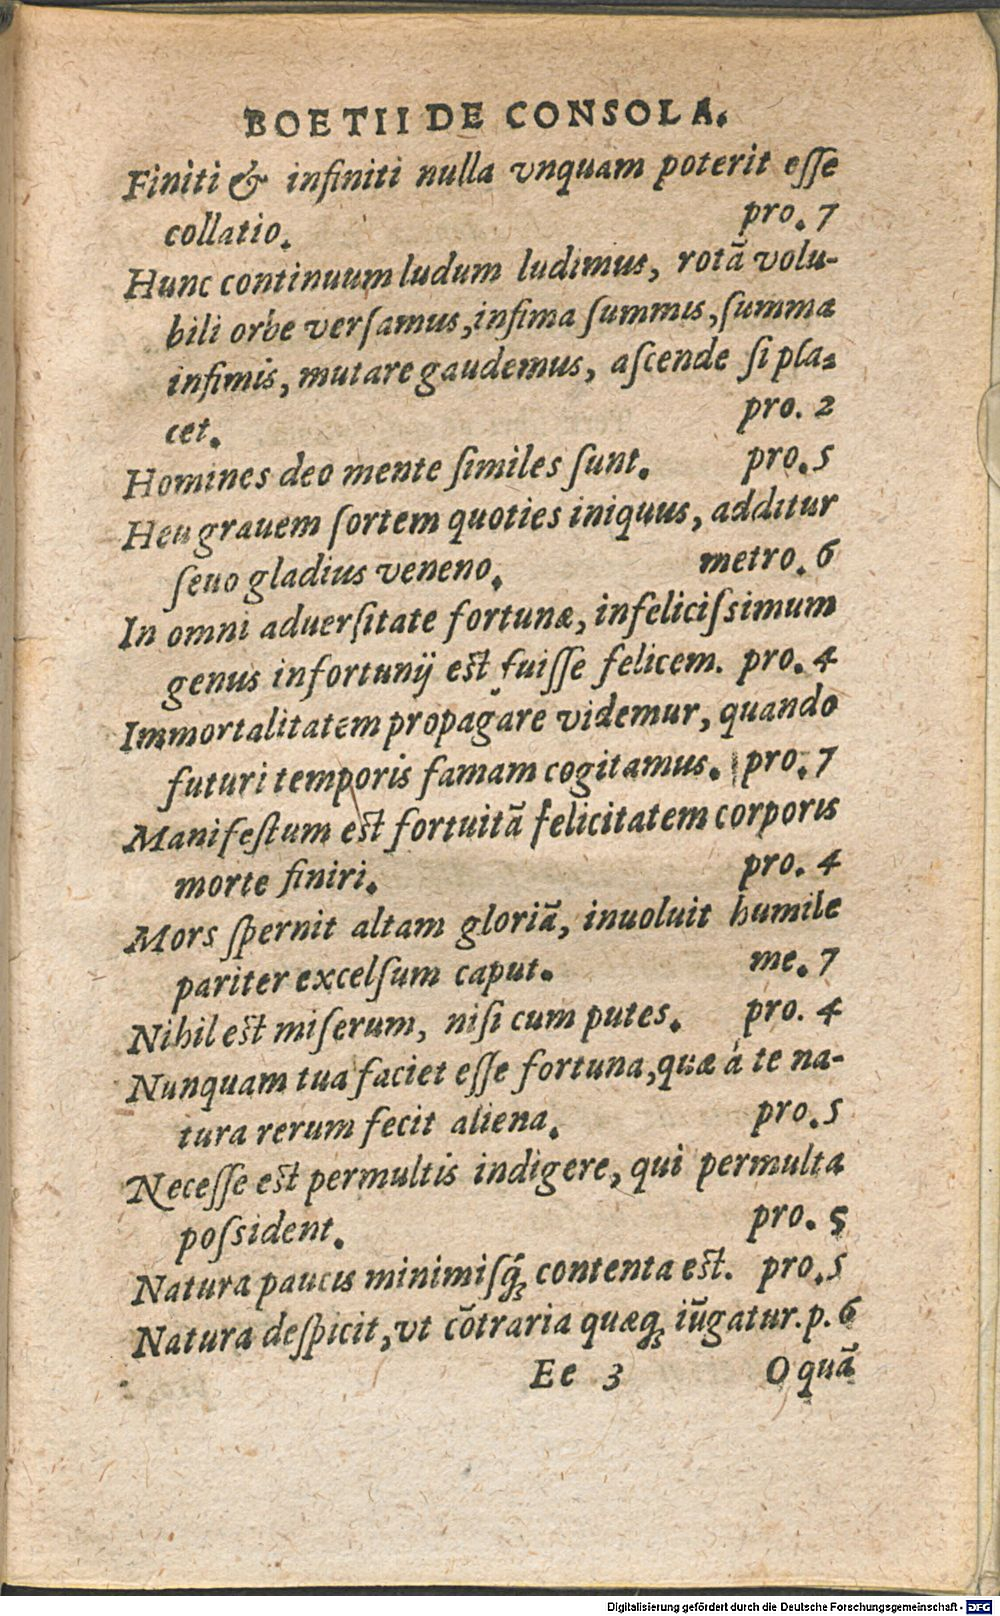 BOETII DE CONSOLA.
Finiti & infiniti nulla vnquam poterit eſſe
collatio. pro. 7
Hunc continuum ludum ludimus, rotā volu-
bili orbe verſamus, infima ſummis, ſumma
infimis, mutare gaudemus, aſcende ſi pla-
cet. pro. 2
Homines deo mente ſimiles ſunt. pro. 5
Heu grauem ſortem quoties iniquus, additur
ſeuo gladius veneno. metro. 6
In omni aduerſitate fortunæ, infeliciſsimum
genus infortunij eſt fuiſſe felicem. pro. 4
Immortalitatem propagare videmur, quando
futuri temporis famam cogitamus. pro. 7
Manifeſtum eſt fortuitā felicitatem corporis
morte finiri. pro. 4
Mors ſpernit altam gloriā, inuoluit humile
pariter excelſum caput. me. 7
Nihil eſt miſerum, niſi cum putes. pro. 4
Nunquam tua faciet eſſe fortuna, quæ à te na-
tura rerum fecit aliena. pro. 5
Neceſſe eſt permultis indigere, qui permulta
poſsident. pro. 5
Natura paucis minimiſq́ꝫ contenta eſt. pro. 5
Natura deſpicit, vt cōtraria quæqꝫ iūgatur. p. 6
Ee 3 O quā
Digitalisierung gefördert durch die Deutsche Forschungsgemeinschaft - DFG